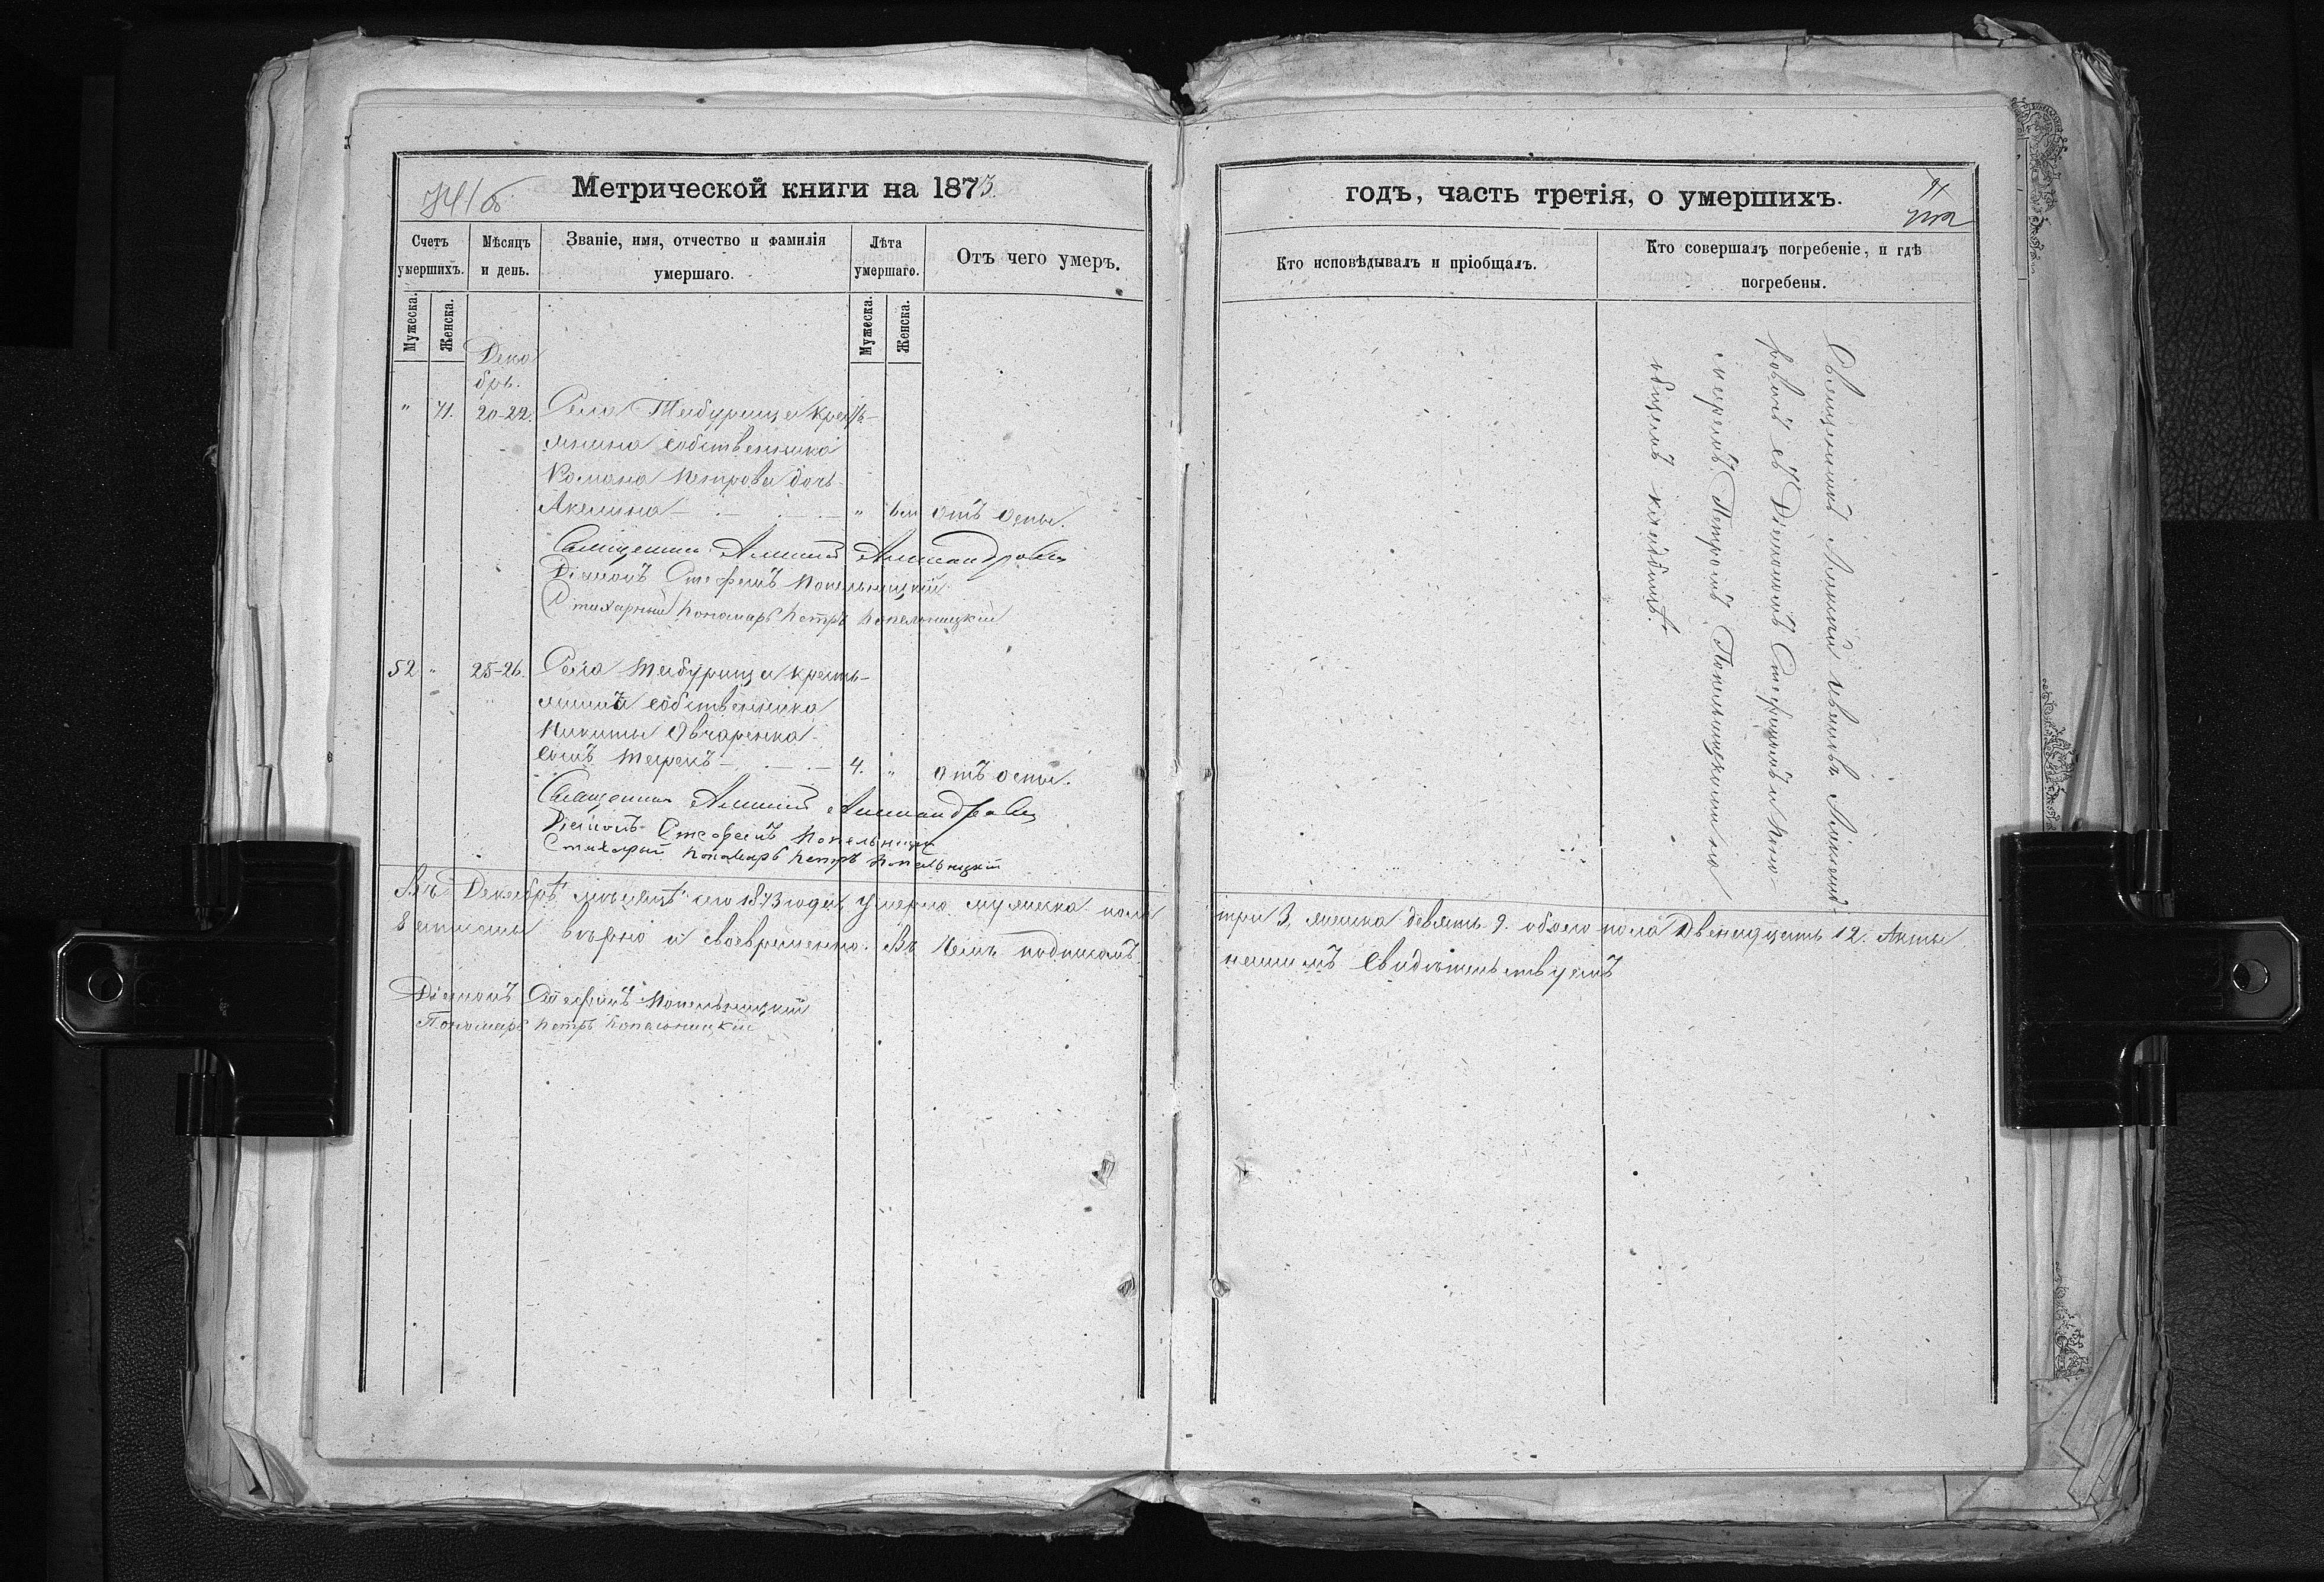 Метрической книги на 1873
Счетъ умершихъ.
Мѣсяцъ и день.
Званіе, имя, отчество и фамилія умершаго.
Лѣта умершаго.
Отъ чего умеръ.
Мужеска.
Женска.
Мужеска.
Женска.
Дека
брь.
" 71. 20-22. Села Тыбурища кресть-
янина собственника
Романа Петрова дочь
Акилина " 6 м отъ оспы.
Священникъ Алексій Александровъ
Діаконъ Стефанъ Копельницкій
Стихарный Пономарь Петръ Копельницкій
52 " 25-26. Села Тыбурища кресть-
янина собственника
Никиты Овчаренка
сынъ 4. " отъ оспы.
Священникъ Алексій Александровъ
Діаконъ Стефанъ Копельницкій
Стихарный Пономарь Петръ Копельницкій
Въ Декабрѣ мѣсяцѣ сего 1873 года умерло мужеска пола
писаны вѣрно и своевременно. Въ чемъ подписомъ
Діаконъ Стефанъ Копельницкій
Пономарь Петръ Копельницкій
годъ, часть третія, о умершихъ.
Кто исповѣдывалъ и пріобщалъ.
Кто совершалъ погребеніе, и гдѣ погребены.
Священникъ Алексій Александ-
ровъ съ Діакономъ Стефаномъ и Поно-
маремъ Петромъ Копельницкими на
общемъ кладбищѣ.
три 3, женска девять 9. обоего пола двенадцать 12. Акты
нашимъ свидѣтельствуемъ